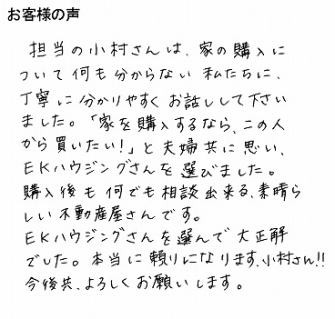 お客様の声
担当の小村さんは、家の購入に
ついて何も分からない私たちに、
丁寧に分かりやすくお話しして下さい
ました。「家を購入するなら、この人
から買いたい!」と夫婦共に思い、
EKハウジングさんを選びました。
購入後も何でも相談出来る、素晴ら
しい不動産屋さんです。
EKハウジングさんを選んで大正解
でした。本当に頼りになります、小村さん!!
今後共、よろしくお願いします。